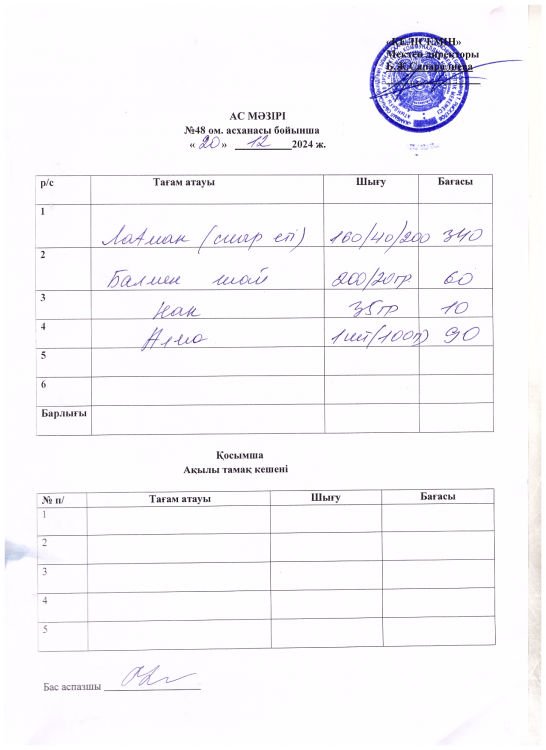 «КЕЛІСЕМІН»
Мектеп директоры
АС МӘЗІРІ
№48 ом. асханасы бойынша
« 20 » 12 2024 ж.
р/с Тағам атауы Шығу Бағасы
1 Лагман (сиыр еті) 160/40/200 340
2 Балмен шай 200/20гр 60
3 Нан 35гр 10
4 Алма 1шт(100г) 90
5
6
Барлығы
Қосымша
Ақылы тамақ кешені
№ п/ Тағам атауы Шығу Бағасы
1
2
3
4
5
Бас аспазшы